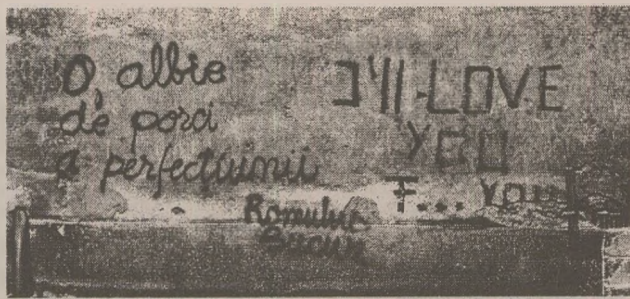 O albie
de porci
a perfecțiunii
Romulus
Bucur
I'll LOVE
YOU
F... You!